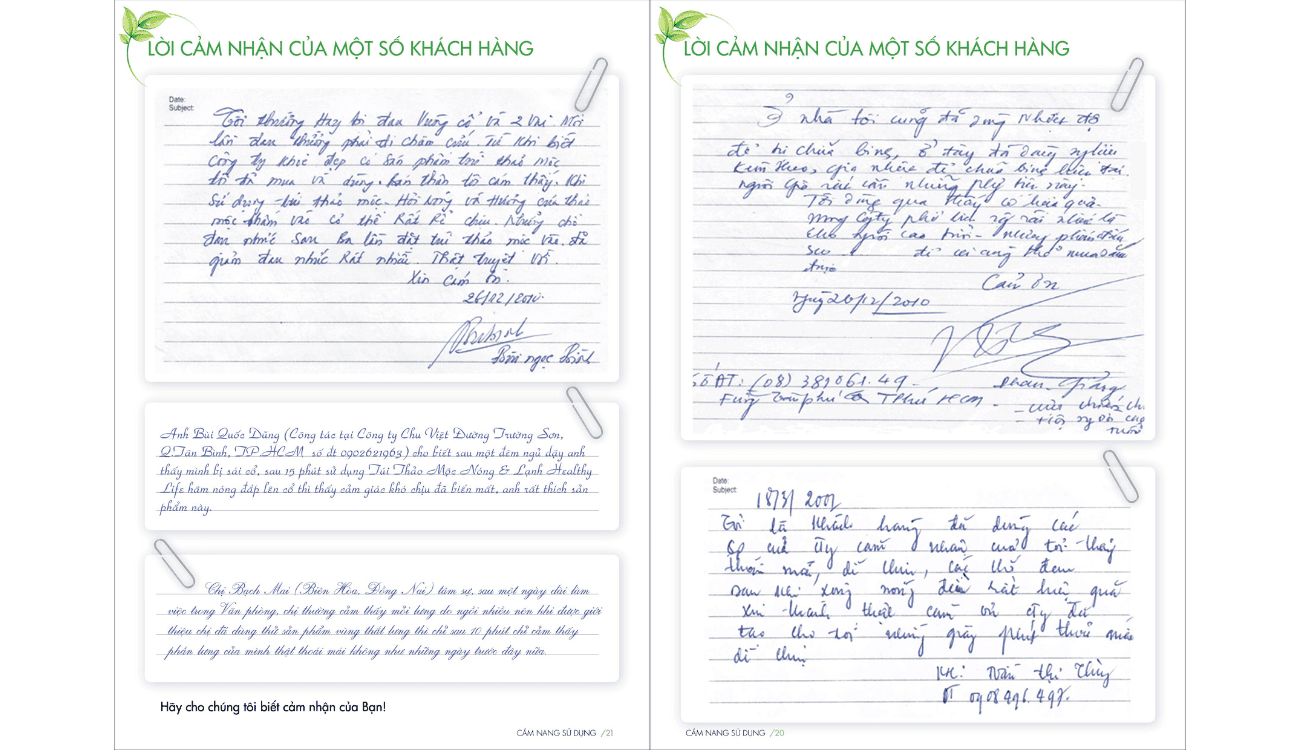 LỜI CẢM NHẬN CỦA MỘT SỐ KHÁCH HÀNG
Date:
Subject:
Tôi thường Hay bị đau Vường cổ và 2 Vai Mỗi
lần đau thường phải đi châm cứu. Từ khi biết
Công ty Khỏe đẹp có sản phẩm túi thảo mộc
tôi đã mua và dùng. bản thân tôi cảm thấy. Khi
Sử dụng túi thảo mộc. Hơi nóng và Hương của thảo
mộc thấm vào cơ thể Rất dễ chịu. Những chỗ
đau nhức Sau Ba lần đặt túi thảo mộc vào. đã
giảm đau nhức Rất nhiều. Thật tuyệt vời.
Xin Cám ơn.
26/12/2010.
Bùi ngọc Bình
Anh Bùi Quốc Dũng (Công tác tại Công ty Chu Việt Đường Trường Sơn,
Q.Tân Bình, TP.HCM số đt 0902621963) cho biết sau một đêm ngủ dậy anh
thấy mình bị sái cổ, sau 15 phút sử dụng Túi Thảo Mộc Nóng & Lạnh Healthy
Life hâm nóng đắp lên cổ thì thấy cảm giác khó chịu đã biến mất, anh rất thích sản
phẩm này.
Chị Bạch Mai (Biên Hòa, Đồng Nai) tâm sự, sau một ngày dài làm
việc trong Văn phòng, chị thường cảm thấy mỏi lưng do ngồi nhiều nên khi được giới
thiệu chị đã dùng thử sản phẩm vùng thắt lưng thì chỉ sau 10 phút chị cảm thấy
phần lưng của mình thật thoải mái không như những ngày trước đây nữa.
Hãy cho chúng tôi biết cảm nhận của Bạn!
CẨM NANG SỬ DỤNG /21
LỜI CẢM NHẬN CỦA MỘT SỐ KHÁCH HÀNG
Ở nhà tôi cũng đã dùng nhiệt độ
để trị chữa bệnh, Ở đây đã dùng
người già rất cần những
Tôi dùng qua thấy có hiệu quả.
mong Cty phổ biến rộng rãi nhất là
cho người cao tuổi
để ai cũng có thể mua
được
Cảm ơn
Ngày 26/12/2010
Số ĐT: (08) 381061.49
HCM
Date:
Subject:
18/3/2001
Tôi là khách hàng đã dùng các
sp của cty cảm nhận của tôi thấy
thoải mái, dễ chịu,
sau khi xong nóng rất hiệu quả
xin thành thật cảm ơn cty đã
tạo cho tôi những giây phút thoải mái
dễ chịu
KH: Trần thị Thùy
ĐT 0908496.497.
CẨM NANG SỬ DỤNG /20